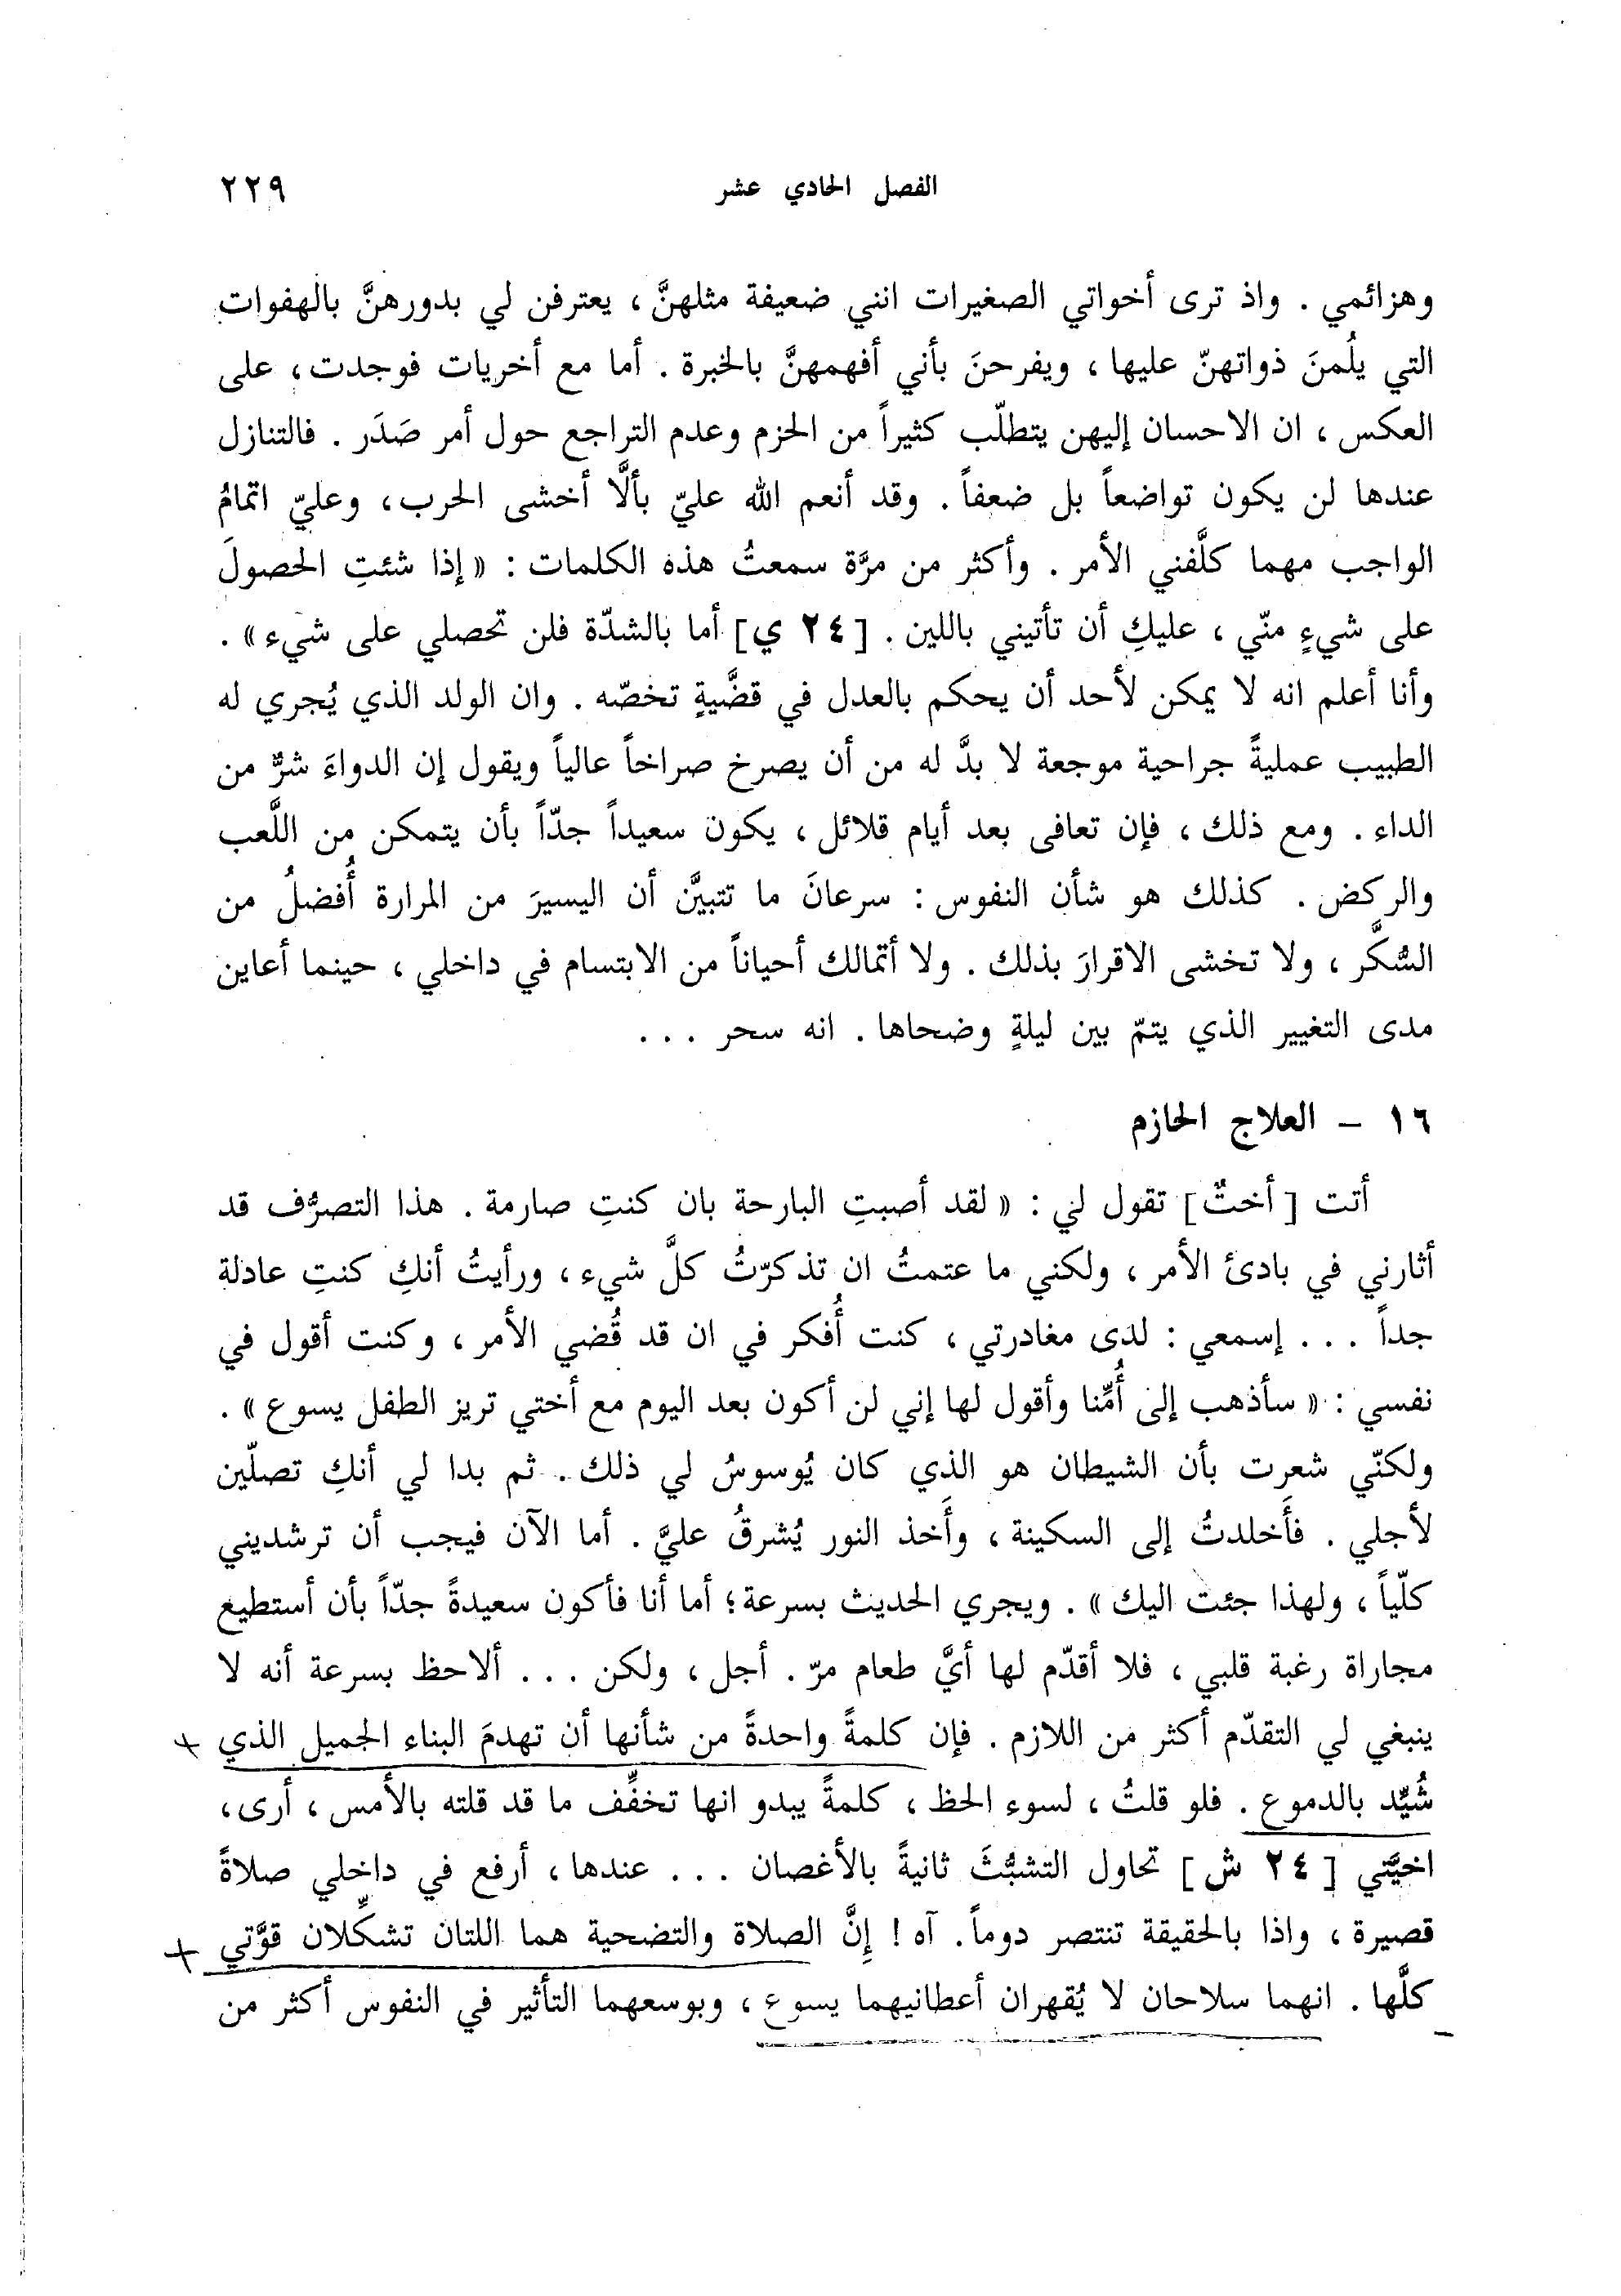 الفصل الحادي عشر ٢٢٩
وهزائمي . واذ ترى أخواتي الصغيرات انني ضعيفة مثلهنَّ ، يعترفن لي بدورهنَّ بالهفوات
التي يلُمنَ ذواتهنّ عليها ، ويفرحنَ بأني أفهمهنَّ بالخبرة . أما مع أخريات فوجدت ، على
العكس ، ان الاحسان إليهن يتطلّب كثيراً من الحزم وعدم التراجع حول أمر صَدَر . فالتنازل
عندها لن يكون تواضعاً بل ضعفاً . وقد أنعم الله عليّ بألَّا أخشى الحرب ، وعليّ اتمامُ
الواجب مهما كلَّفني الأمر . وأكثر من مرَّة سمعتُ هذه الكلمات : « إذا شئتِ الحصولَ
على شيءٍ منّي ، عليكِ أن تأتيني باللين . [ ٢٤ ي ] أما بالشدّة فلن تحصلي على شيء » .
وأنا أعلم انه لا يمكن لأحد أن يحكم بالعدل في قضَّيةٍ تخصّه . وان الولد الذي يُجري له
الطبيب عمليةً جراحية موجعة لا بدَّ له من أن يصرخ صراخاً عالياً ويقول إن الدواءَ شرٌّ من
الداء . ومع ذلك ، فإن تعافى بعد أيام قلائل ، يكون سعيداً جدّاً بأن يتمكن من اللَّعب
والركض . كذلك هو شأن النفوس : سرعانَ ما تتبيَّن أن اليسيرَ من المرارة أُفضلُ من
السُّكَّر ، ولا تخشى الاقرارَ بذلك . ولا أتمالك أحياناً من الابتسام في داخلي ، حينما أعاين
مدى التغيير الذي يتمّ بين ليلةٍ وضحاها . انه سحر . . .
١٦ – العلاج الحازم
أتت [ أختٌ ] تقول لي : « لقد أصبتِ البارحة بان كنتِ صارمة . هذا التصرُّف قد
أثارني في بادئ الأمر ، ولكني ما عتمتُ ان تذكرّتُ كلَّ شيء ، ورأيتُ أنكِ كنتِ عادلة
جداً . . . إسمعي : لدى مغادرتي ، كنت أُفكر في ان قد قُضي الأمر ، وكنت أقول في
نفسي : « سأذهب إلى أُمِّنا وأقول لها إني لن أكون بعد اليوم مع أختي تريز الطفل يسوع » .
ولكنّي شعرت بأن الشيطان هو الذي كان يُوسوسُ لي ذلك . ثم بدا لي أنكِ تصلّين
لأجلي . فأَخلدتُ إلى السكينة ، وأَخذ النور يُشرقُ عليَّ . أما الآن فيجب أن ترشديني
كلّياً ، ولهذا جئت اليك » . ويجري الحديث بسرعة ؛ أما أنا فأكون سعيدةً جدّاً بأن أستطيع
مجاراة رغبة قلبي ، فلا أقدّم لها أيَّ طعام مرّ . أجل ، ولكن . . . ألاحظ بسرعة أنه لا
ينبغي لي التقدّم أكثر من اللازم . فإن كلمةً واحدةً من شأنها أن تهدمَ البناء الجميل الذي +
شُيِّد بالدموع . فلو قلتُ ، لسوء الحظ ، كلمةً يبدو انها تخفِّف ما قد قلته بالأمس ، أرى ،
اخيَّتي [ ٢٤ ش ] تحاول التشبُّثَ ثانيةً بالأغصان . . . عندها ، أرفع في داخلي صلاةً
قصيرة ، واذا بالحقيقة تنتصر دوماً . آه ! إِنَّ الصلاة والتضحية هما اللتان تشكِّلان قوَّتي +
كلَّها . انهما سلاحان لا يُقهران أعطانيهما يسوع ، وبوسعهما التأثير في النفوس أكثر من